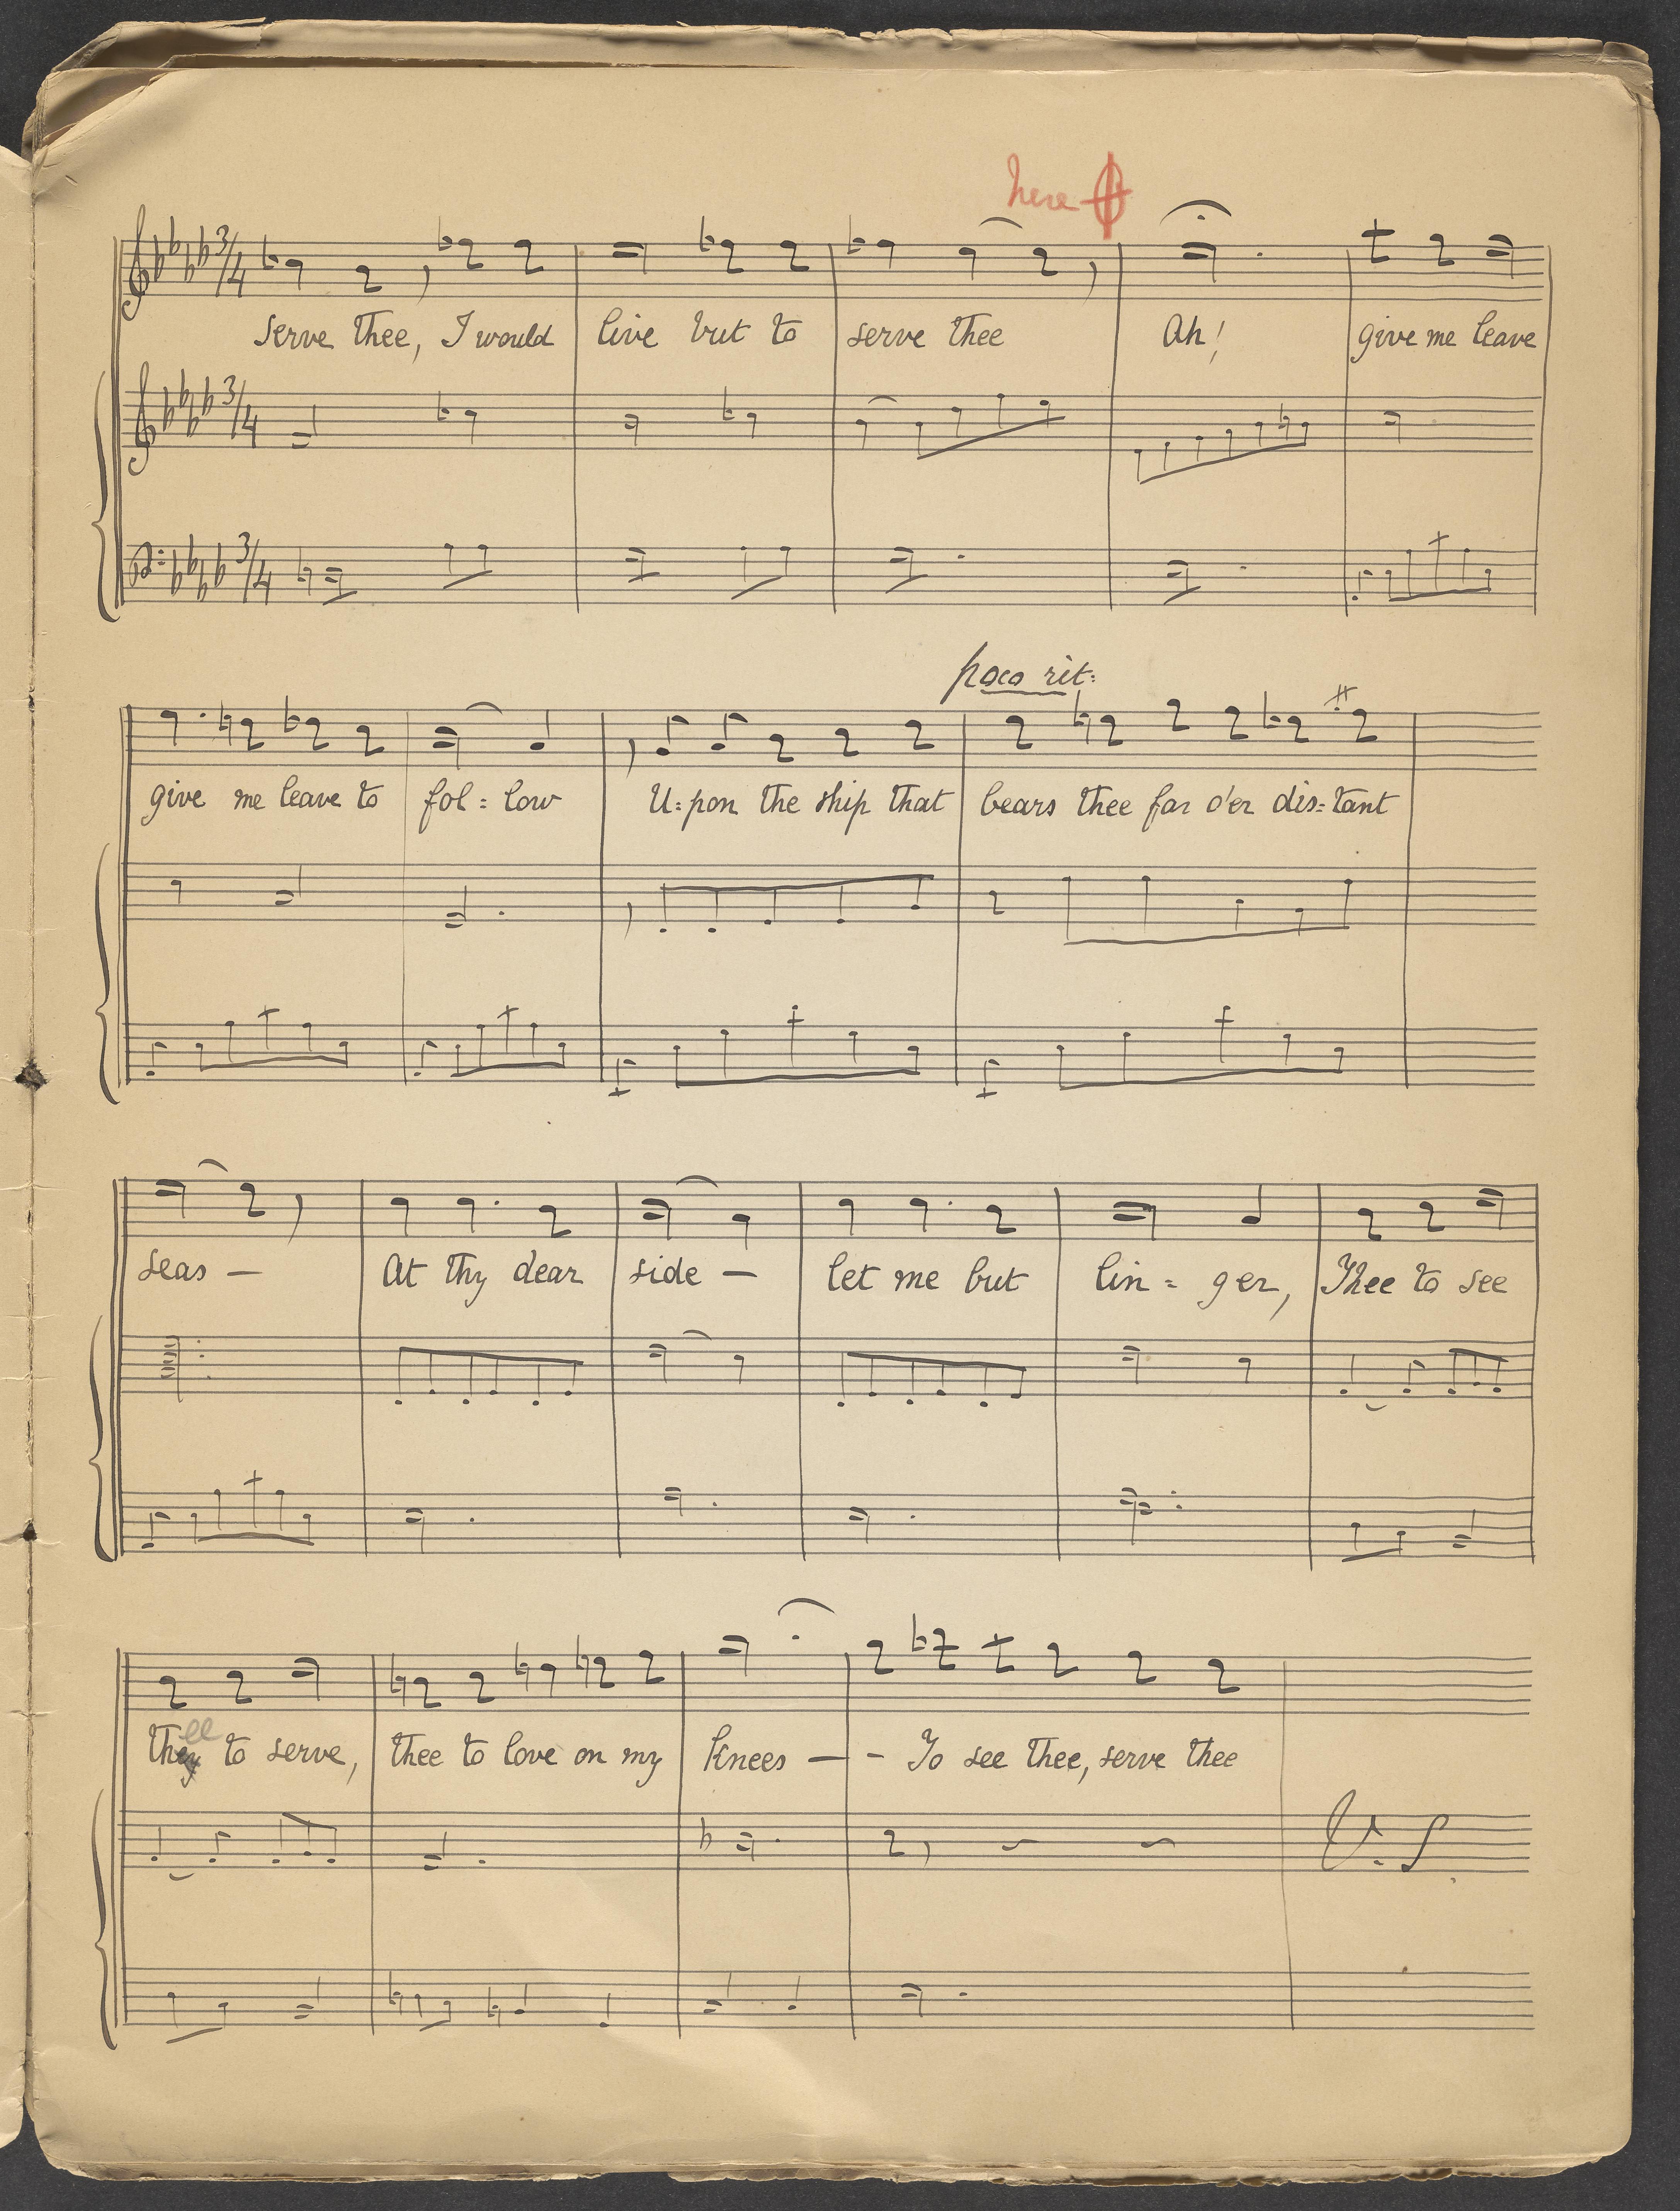 here
3/4
serve thee, I would live but to serve thee Ah! give me leave
3/4
3/4
poco rit:
give me leave to fol = low U=pon the ship that bears thee far o'er dis=tant
seas — At thy dear side — let me but lin = ger, Thee to see
ee
they to serve, thee to love on my knees — - To see thee, serve thee
V. S.